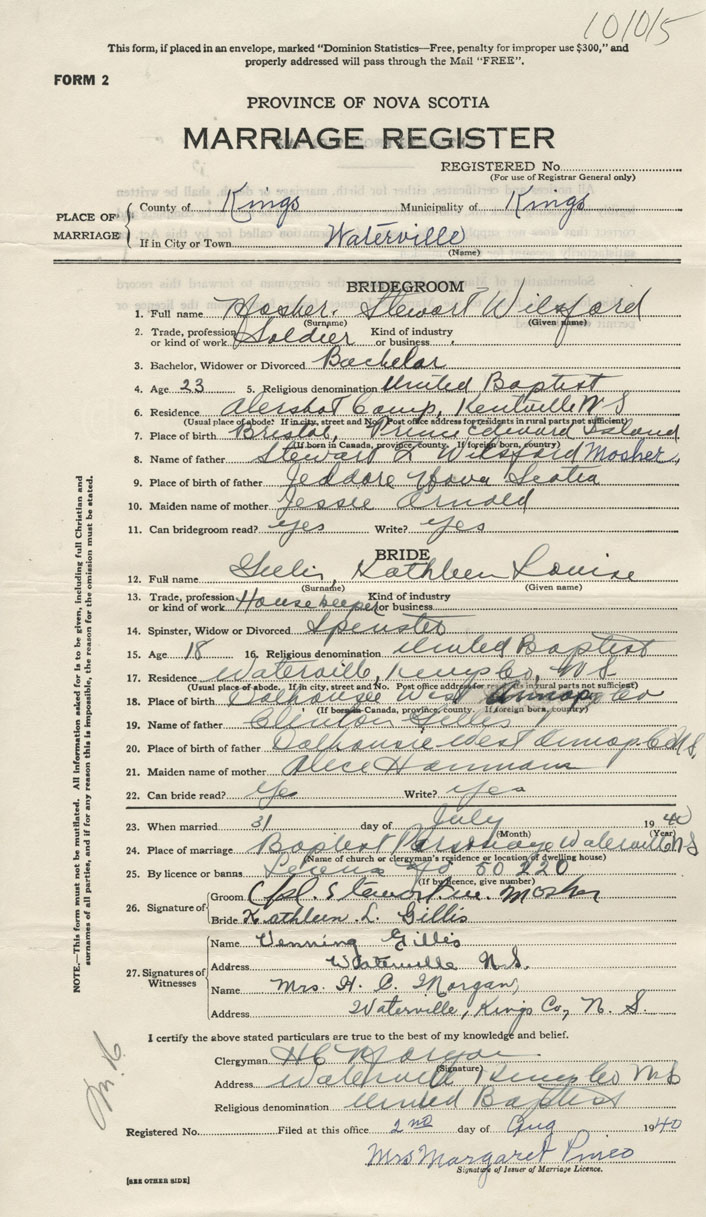 10/0/5
This form, if placed in an envelope, marked "Dominion Statistics—Free, penalty for improper use $300," and
properly addressed will pass through the Mail "FREE".
FORM 2
PROVINCE OF NOVA SCOTIA
MARRIAGE REGISTER
REGISTERED No.
(For use of Registrar General only)
PLACE OF MARRIAGE
County of Kings Municipality of Kings
If in City or Town Waterville
(Name)
BRIDEGROOM
1. Full name Mosher, Stewart Wilsford
(Surname) (Given name)
2. Trade, profession or kind of work Soldier Kind of industry or business
3. Bachelor, Widower or Divorced Bachelor
4. Age 23 5. Religious denomination United Baptist
6. Residence Alershot Camp, Kentville N S
(Usual place of abode. If in city, street and No. Post office address for residents in rural parts not sufficient)
7. Place of birth Bristol, Prince Edward Island
(If born in Canada, province, county. If foreign born, country)
8. Name of father Stewart L Wilsford Mosher
9. Place of birth of father Jeddore Nova Scotia
10. Maiden name of mother Jessie Arnold
11. Can bridegroom read? yes Write? yes
BRIDE
12. Full name Gillis, Kathleen Louise
(Surname) (Given name)
13. Trade, profession or kind of work Housekeeper Kind of industry or business
14. Spinster, Widow or Divorced Spinster
15. Age 18 16. Religious denomination United Baptist
17. Residence Waterville, Kings Co, N S
(Usual place of abode. If in city, street and No. Post office address for residents in rural parts not sufficient)
18. Place of birth Dalhousie West Annap Co
(If born in Canada, province, county. If foreign born, country)
19. Name of father Clinton Gillis
20. Place of birth of father Dalhousie West Annap. Co N S,
21. Maiden name of mother Alice
22. Can bride read? Yes Write? yes
23. When married 31 day of July 1940
(Month) (Year)
24. Place of marriage Baptist Parsonage Waterville N S
(Name of church or clergyman's residence or location of dwelling house)
25. By licence or banns No 50220
(If by licence, give number)
26. Signature of
Groom Cpl. Stewart W. Mosher
Bride Kathleen L. Gillis
27. Signatures of Witnesses
Name Venning Gillis
Address Waterville N.S.
Name Mrs. H. C. Morgan,
Address Waterville, Kings Co, N. S.
I certify the above stated particulars are true to the best of my knowledge and belief.
Clergyman H C Morgan
(Signature)
Address Waterville Kings Co N S
Religious denomination United Baptist
Registered No. Filed at this office 2nd day of Aug 1940
Mrs Margaret Pineo
Signature of Issuer of Marriage Licence.
[SEE OTHER SIDE]
NOTE.—This form must not be mutilated. All information asked for is to be given, including full Christian and
surnames of all parties, and if for any reason this is impossible, the reason for the omission must be stated.